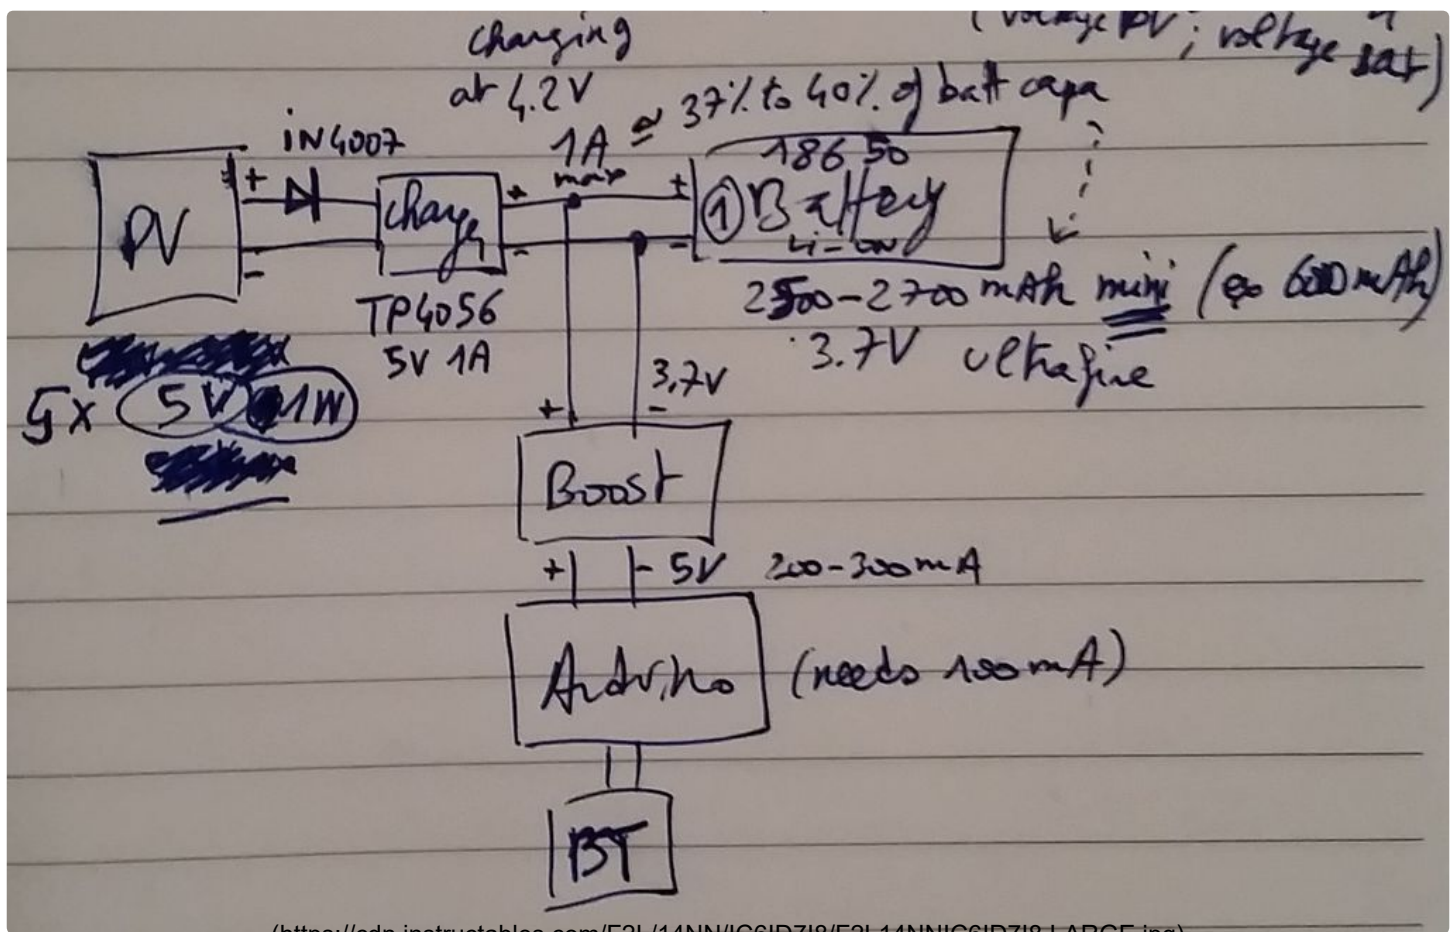 (voltage PV ; voltage bat)
charging
at 4.2V
1A ≃ 37% to 40% of batt capa
max
iN4007
PV
+
-
Charger
+
-
TP4056
5V 1A
18650
+
① Battery
-
Li-on
2500-2700 mAh mini (ex 6000mAh)
3.7V ultrafire
5x 5V 1W
3,7V
+
-
Boost
+ - 5V 200-300mA
Arduino (needs 100mA)
BT